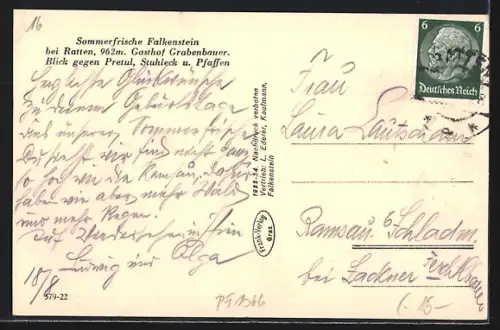 16
Sommerfrische Falkenstein
bei Ratten, 962m. Gasthof Grabenbauer.
Blick gegen Pretul, Stuhleck u. Pfaffen
Herzliche Glückwünsche
zu deinem Geburtstage
aus unserer Sommerfrische
Du siehst wir sind nicht ganz
so hoch wie die Ramsau, dafür
haben wir aber mehr Wald
und mehr Regen.
Auf Wiedersehen in
Ludwig und Olga
18/8
579-22
1938-34. Nachdruck verboten
Vertrieb: L. Ederer, Kaufmann,
Falkenstein
Frank-Verlag
Graz
PT 1366
6 6
Deutsches Reich
Frau
Laura
Ramsau b/Schladm.
bei Lackner
(-15-